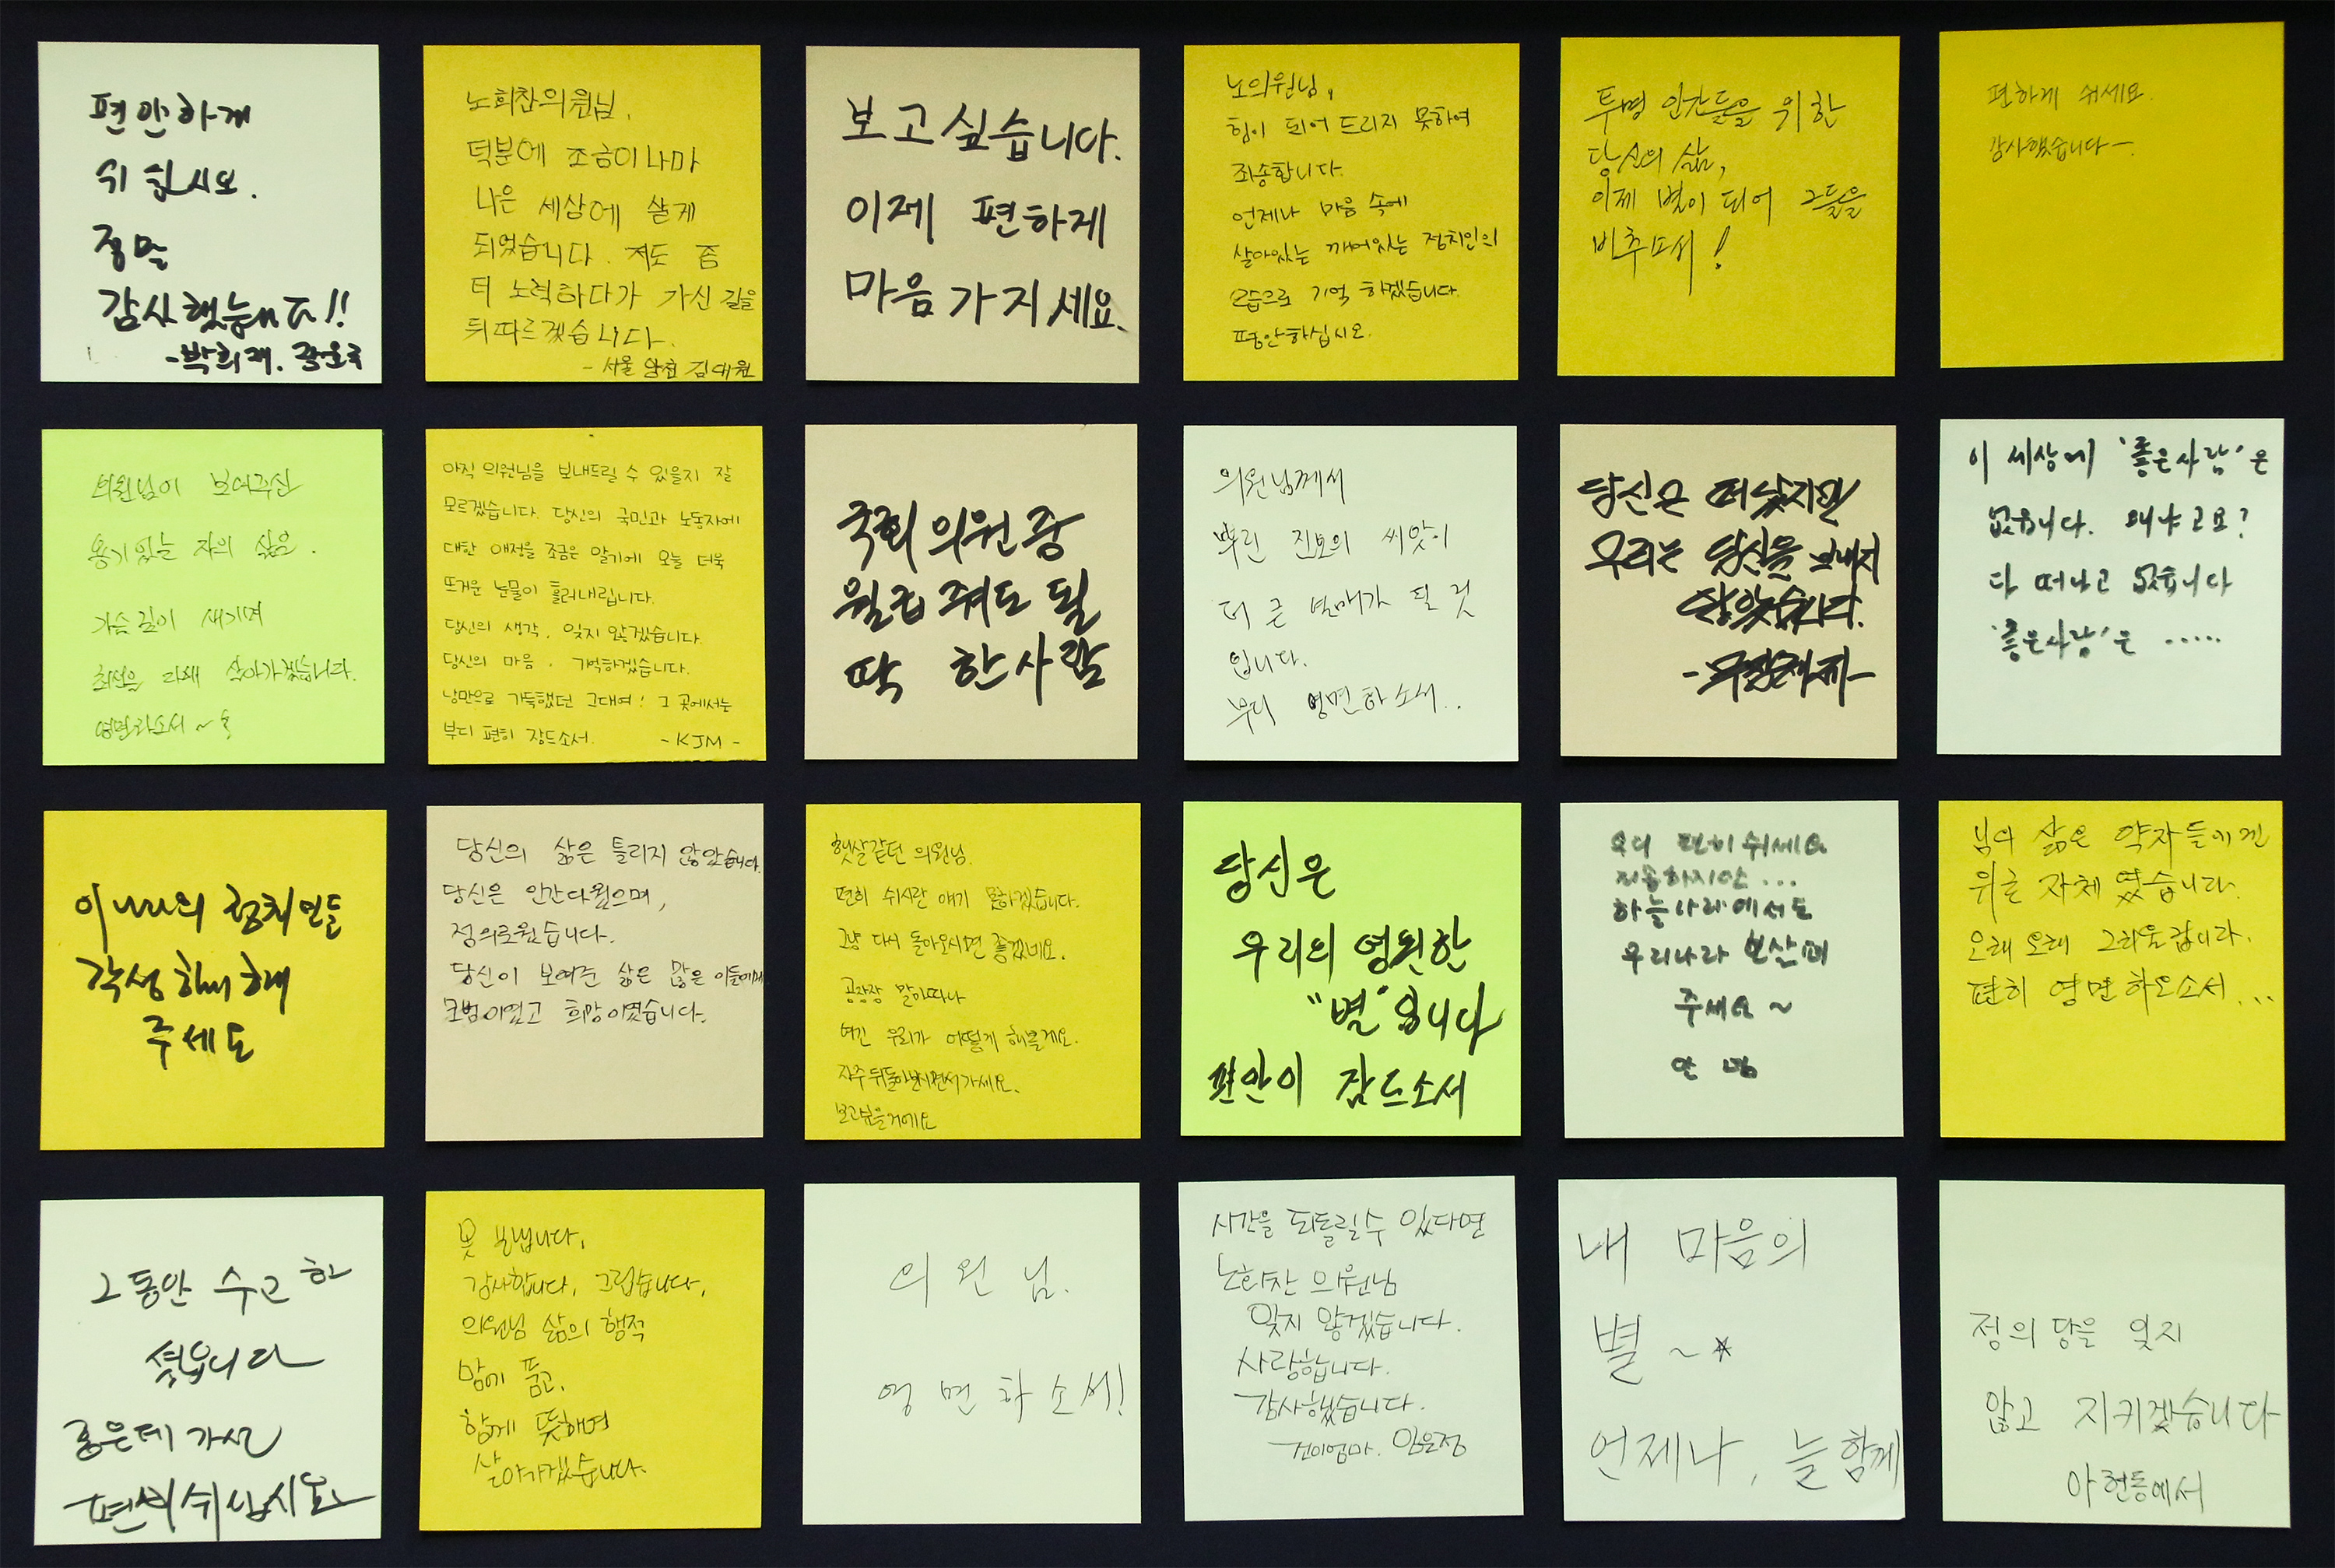 편안하게
쉬십시오.
정말
감사했습니다!!
-박희재.
노회찬의원님,
덕분에 조금이나마
나은 세상에 살게
되었습니다. 저도 좀
더 노력하다가 가신 길을
뒤따르겠습니다.
- 서울 양천 김대원
보고싶습니다.
이제 편하게
마음가지세요.
노의원님,
힘이 되어 드리지 못하여
죄송합니다.
언제나 마음 속에
살아있는 깨어있는 정치인의
모습으로 기억 하겠습니다.
평안하십시오.
투명 인간들을 위한
당신의 삶,
이제 별이 되어 그들을
비추소서!
편하게 쉬세요.
감사했습니다~.
의원님이 보여주신
용기있는 자의 삶을.
가슴 깊이 새기며
최선을 다해 살아가겠습니다.
영면하소서~
아직 의원님을 보내드릴 수 있을지 잘
모르겠습니다. 당신의 국민과 노동자에
대한 애정을 조금은 알기에 오늘 더욱
뜨거운 눈물이 흘러내립니다.
당신의 생각, 잊지 않겠습니다.
당신의 마음, 기억하겠습니다.
낭만으로 가득했던 그대여! 그 곳에서는
부디 편히 잠드소서. - KJM -
국회의원중
월급 줘도 될
딱 한사람
의원님께서
뿌린 진보의 씨앗이
더 큰 열매가 될 것
입니다.
부디 영면하소서..
당신은 떠났지만
우리는 당신을 보내지
않았습니다.
이 세상에 '좋은사람'은
없습니다. 왜냐고요?
다 떠나고 없습니다
'좋은사람'은 .....
정치인들
각성하게해
주세요
당신의 삶은 틀리지 않았습니다.
당신은 인간다웠으며,
정의로웠습니다.
당신이 보여준 삶은 많은 이들에게
모범이었고 희망이었습니다.
햇살같던 의원님.
편히 쉬시란 얘기 못하겠습니다.
그냥 다시 돌아오시면 좋겠네요.
공장장 말마따나
여긴 우리가 어떻게 해볼게요.
자주 뒤돌아보시면서가세요.
보고싶을거에요
당신은
우리의 영원한
"별"입니다
편안이 잠드소서
부디 편히 쉬세요
죄송하지만...
하늘나라에서도
우리나라 보살펴
주세요~
님의 삶은 약자들에겐
위로 자체 였습니다.
오래오래 그리울겁니다.
편히 영면하오소서...
그동안 수고하
셨습니다
좋은데 가셔
편히쉬십시오
못 보냅니다.
감사합니다. 그립습니다.
의원님 삶의 행적
맘에 품고,
함께 뜻해며
살아가겠습니다.
의원님.
영면하소서!
시간을 되돌릴수 있다면
노회찬 의원님
잊지 않겠습니다.
사랑합니다.
감사했습니다.
건이엄마. 임은정
내 마음의
별~★
언제나, 늘 함께
정의당을 잊지
않고 지키겠습니다
아현동에서